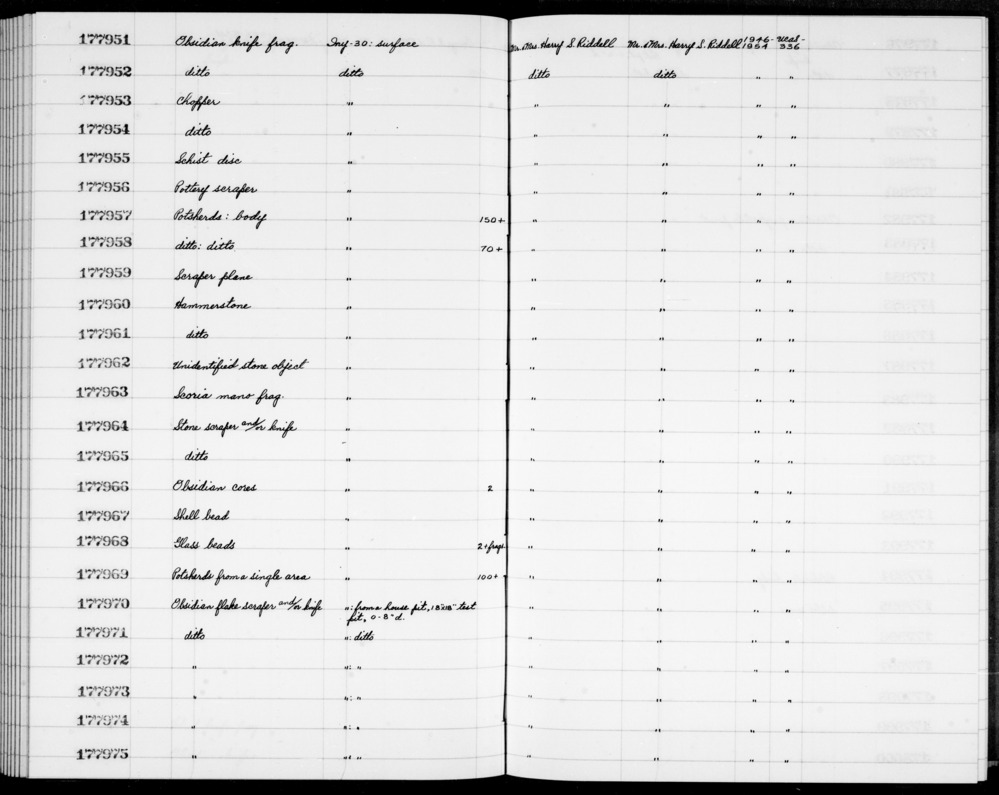 177951 Obsidian knife frag. Iny-30: surface Mr. & Mrs. Harry S. Riddell Mr. & Mrs. Harry S. Riddell 1946-1954 UCAS-336
177952 ditto ditto ditto ditto " "
177953 Chopper " " " " "
177954 ditto " " " " "
177955 Schist disc " " " " "
177956 Pottery scraper " " " " "
177957 Potsherds: body " 150+ " " " "
177958 ditto: ditto " 70+ " " " "
177959 Scraper plane " " " " "
177960 Hammerstone " " " " "
177961 ditto " " " " "
177962 Unidentified stone object " " " " "
177963 Scoria mano frag. " " " " "
177964 Stone scraper and/or knife " " " " "
177965 ditto " " " " "
177966 Obsidian cores " 2 " " " "
177967 Shell bead " " " " "
177968 Glass beads " 2+frags " " " "
177969 Potsherds from a single area " 100+ " " " "
177970 Obsidian flake scraper and/or knife ": from a house pit, 18"x18" test " " " "
pit, 0-8" d.
177971 ditto ": ditto " " " "
177972 " ": " " " " "
177973 " ": " " " " "
177974 " ": " " " " "
177975 " ": " " " " "